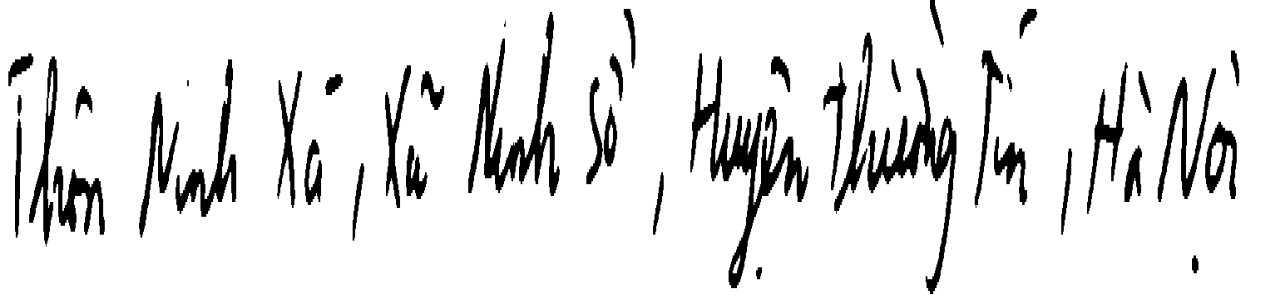 Thôn Ninh Xá, Xã Ninh Sở, Huyện Thường Tín, Hà Nội